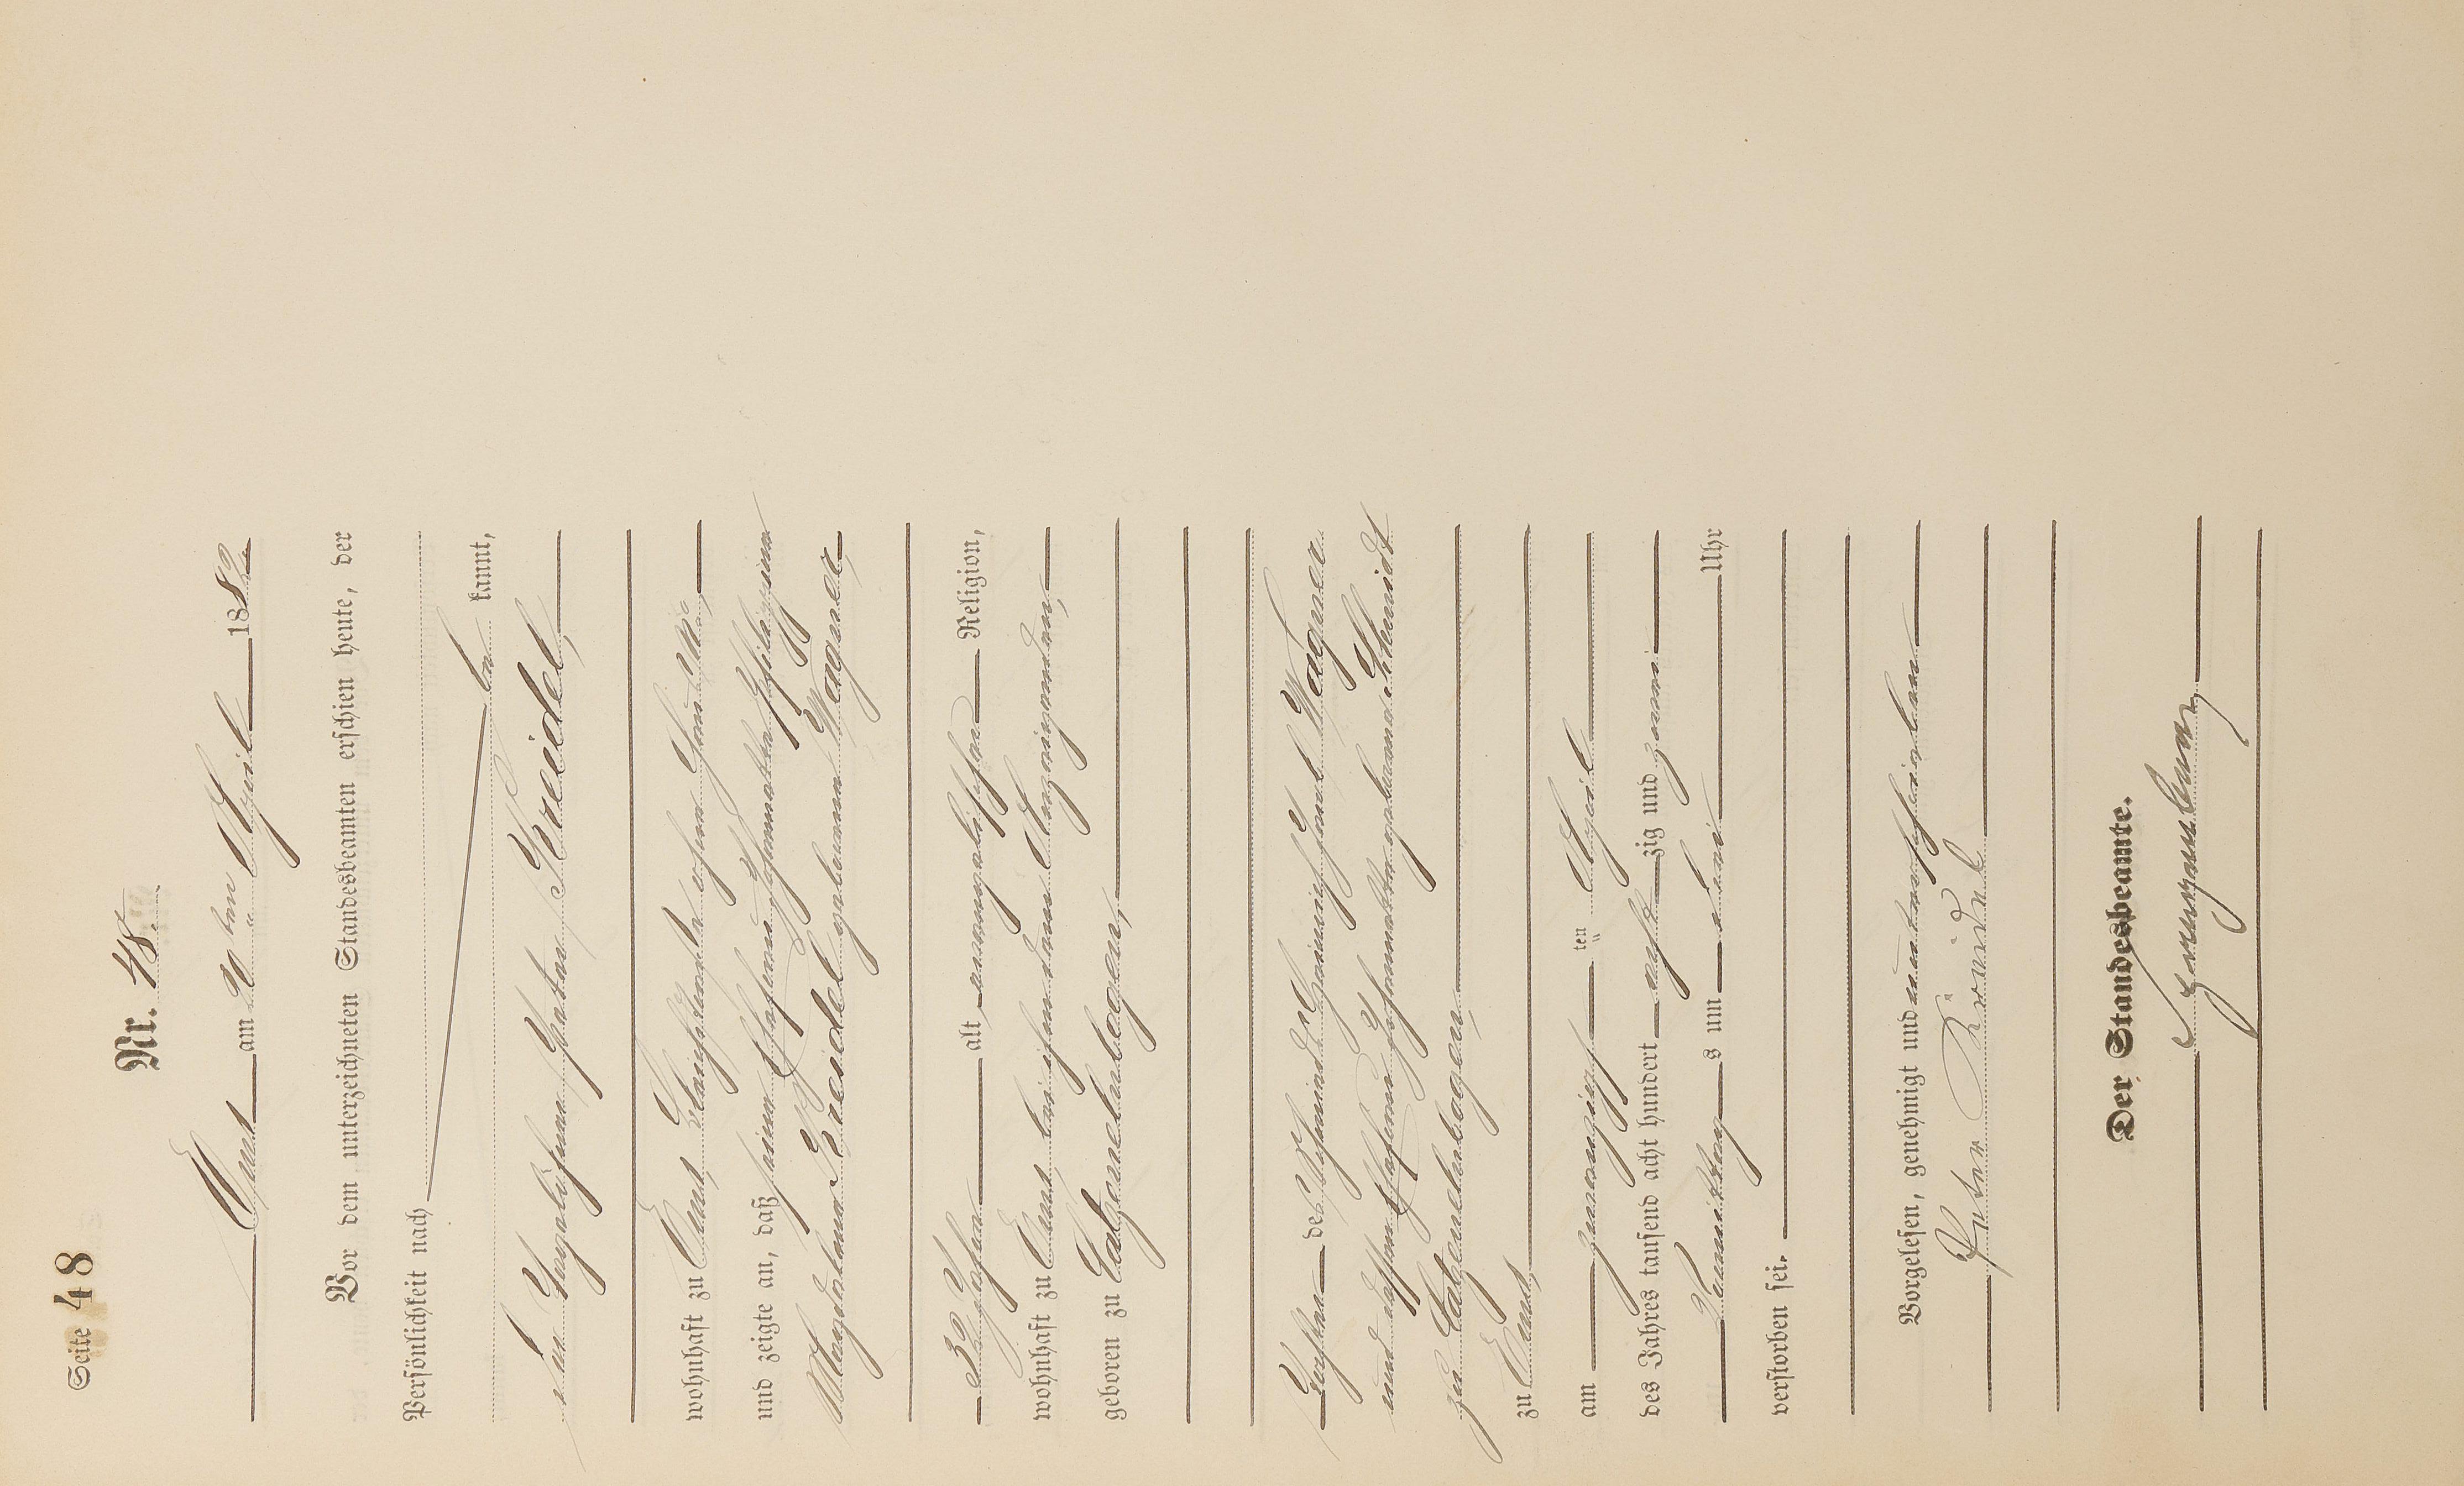 Seite 48
Nr. 48.
Ems am 20ten April 1882.
Vor dem unterzeichneten Standesbeamten erschien heute, der
Persönlichkeit nach
be kannt,
der Taglöhner Peter Kreidel,
wohnhaft zu Ems,
und zeigte an, daß seine Ehefrau Johannette Philippine
Magdalene Kreidel geborene Wagner,
32 Jahre alt, evangelischer Religion,
wohnhaft zu Ems bei ihrem Ehemanne,
geboren zu Katzenelnbogen,
Tochter des Heinrich Wagner
und dessen Ehefrau Johannette geborene Schmidt
zu Katzenelnbogen,
zu Ems,
am zwanzigsten April
des Jahres tausend acht hundert achtzig und zwei
Vormittags um drei Uhr
verstorben sei.
Vorgelesen, genehmigt und unterschrieben
Peter Kreidel
Der Standesbeamte.